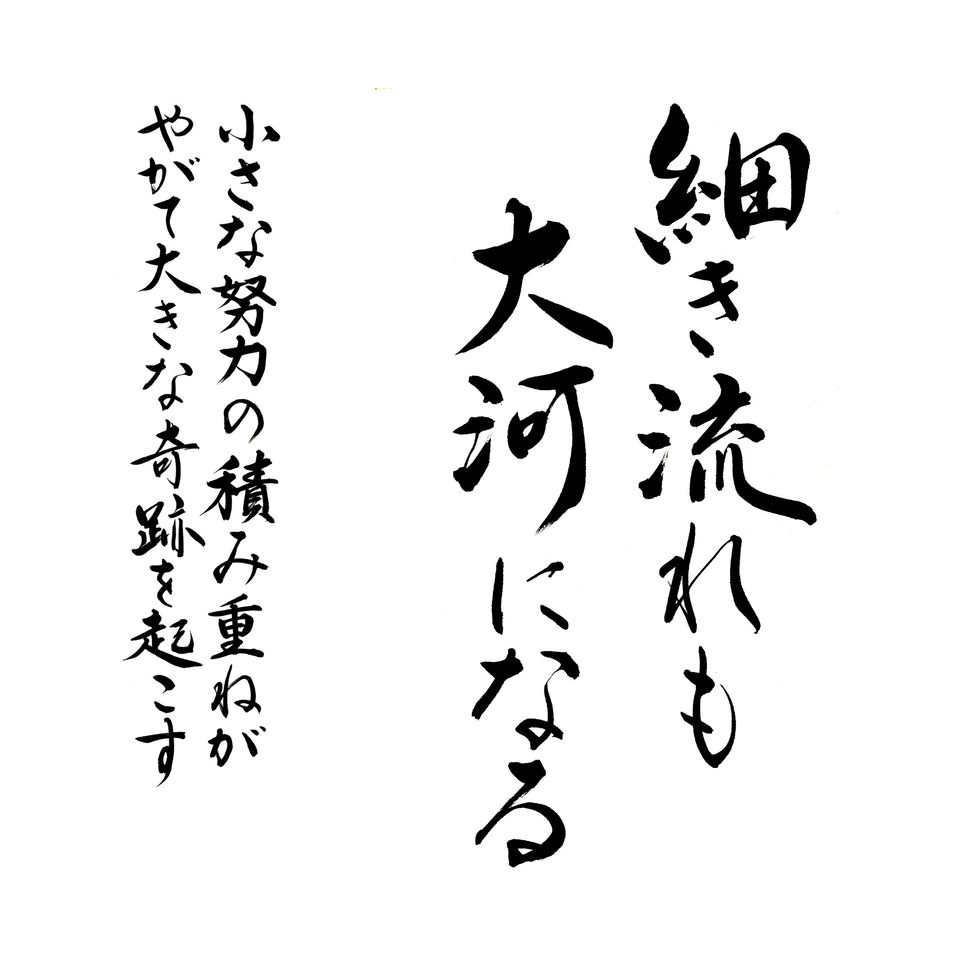 細き流れも
大河になる
小さな努力の積み重ねが
やがて大きな奇跡を起こす